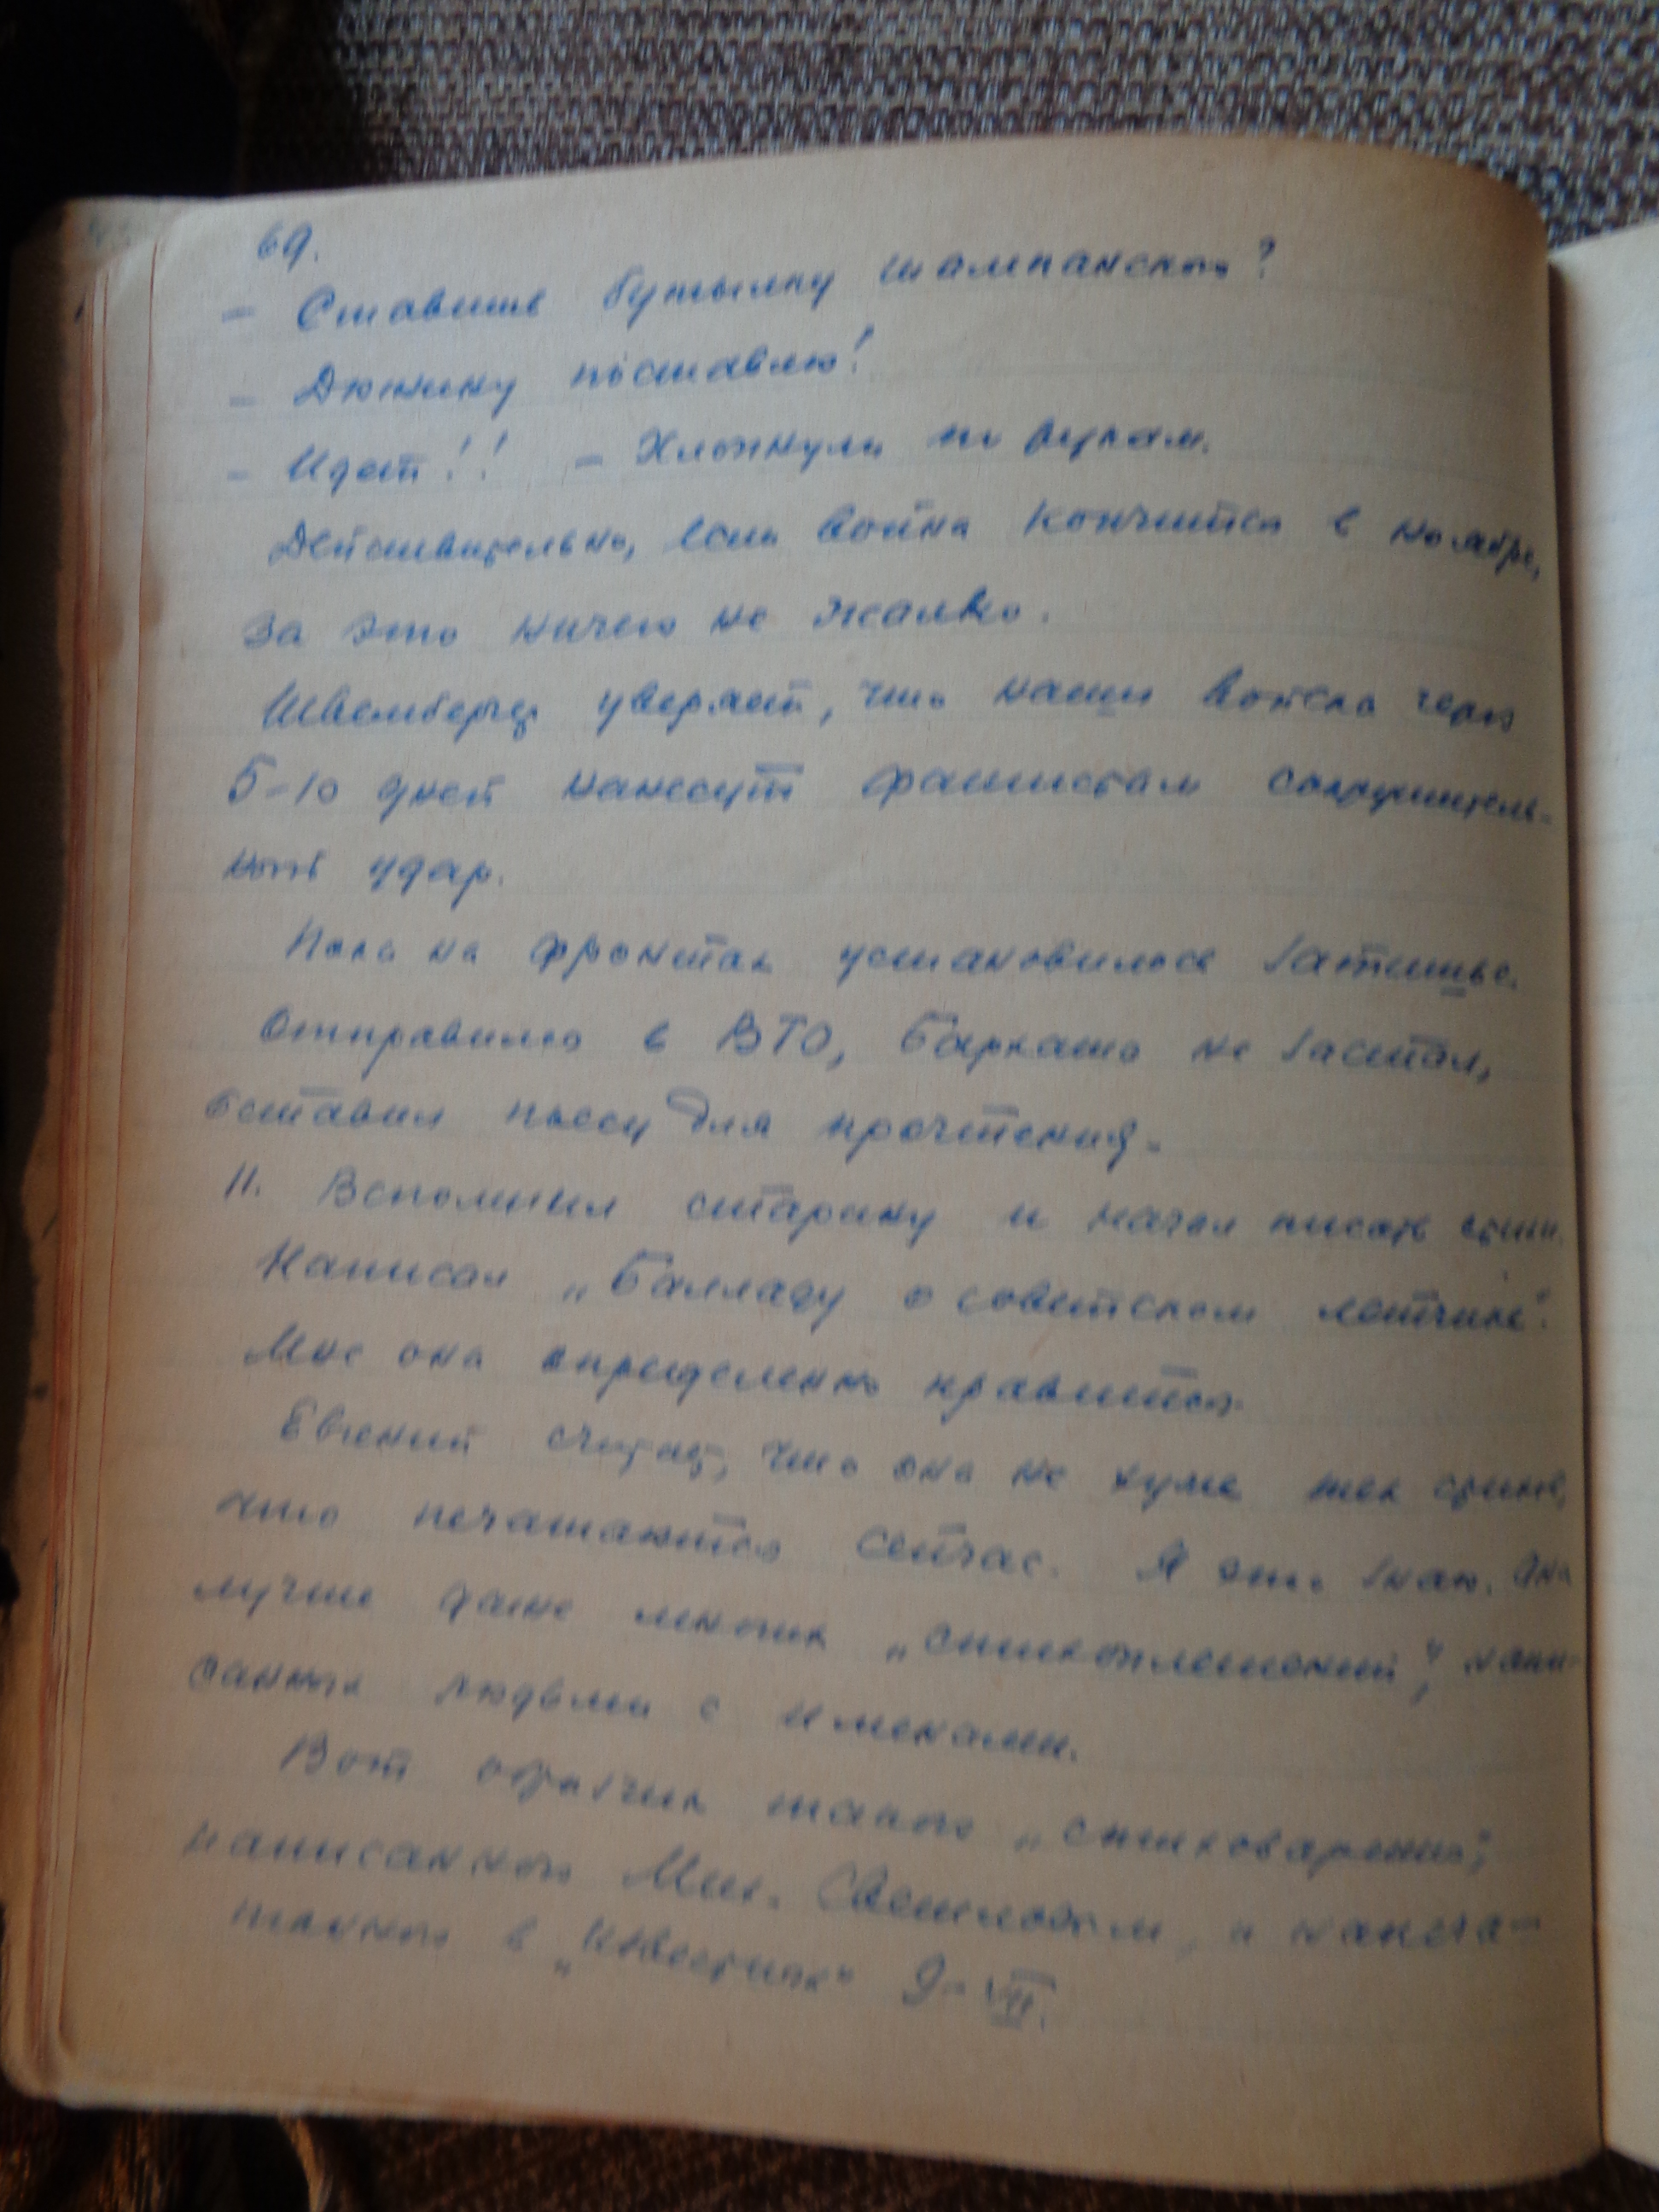 69.
– Ставишь бутылку шампанского?
– Дюжину поставлю!
– Идет!! – Хлопнули по рукам.
Действительно, если война кончится в ноябре,
за это ничего не жалко.
уверяет, что наши войска через
5-10 дней нанесут фашистам сокрушитель-
ный удар.
Пока на фронтах установилось затишье.
Отправился в ВТО, не застал,
оставил пьесу для прочтения.
11. Вспомнил старину и начал писать стихи.
Написал „Балладу о советском летчике".
Мне она определенно нравится.
Евгений считает, что она не хуже тех стихов,
что печатаются сейчас. Я это знаю. Она
лучше даже многих „стихотворений", напи-
санных людьми с именами.
Вот образчик такого „стихотворения",
написанного Мих. Светловым, и напеча-
танного в „Известиях" 9-VII.